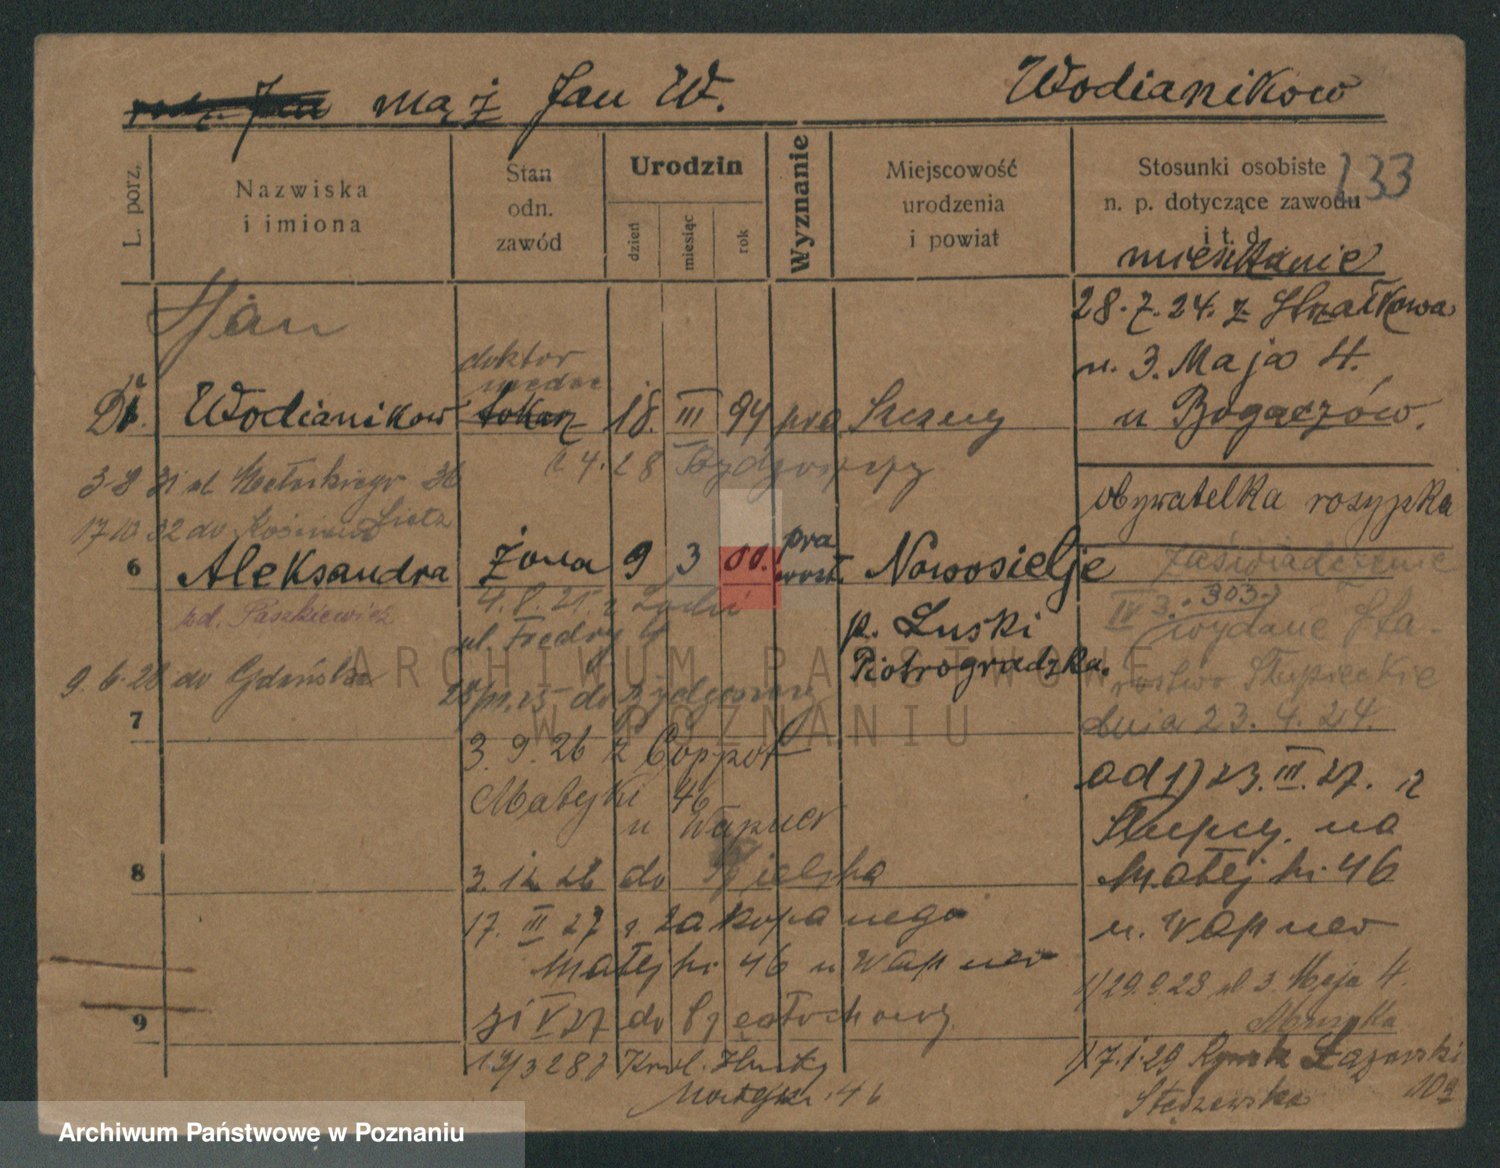 mąż Jan W. Wodianikow
L. porz.
Nazwiska
i imiona
Stan
odn.
zawód
Urodzin
dzień
miesiąc
rok
Wyznanie
Miejscowość
urodzenia
i powiat
Stosunki osobiste
n. p. dotyczące zawodu
i t. d.
133
mieszkanie
Jan
28.7.24. z Strzałkowa
u. 3. Maja 4.
u Bogaczów.
doktor
Wodianikow tokarz 18. III 94 pra
24.28 Bydgoszczy
3.8 31 ul
17.10.32 do
obywatelka rosyjska
6 Aleksandra żona 9 3 00. pra
wosł. Nowosielje
p. Łuski
Piotrogradzka.
zd. Paszkiewicz
4.8.25. z Łodzi
ul. Fredry 4
9.6.28 do Gdańska
do Bydgoszczy
Zaświadczenie
IV 3. 303.
wydane Sta-
rostwo Słupieckie
dnia 23.4.24.
7
3.9.26 z Coppot
Matejki 46
u Wapner
od 1) 23.III.27. z
Słupcy, na
Matejki 46
u. Wapner
8
3.12 26 do Bielska
17. III 27 z Zakopanego
Matejki 46 u Wapner
31 V 27 do Częstochowy
9
1) 29.9.28 ul 3. Maja 4.
1) 7.1.29 Rynek Łazarski
10a
Stęszewska
19/3 28 z Król. Huty
Matejki 46
ARCHIWUM PAŃSTWOWE
W POZNANIU
Archiwum Państwowe w Poznaniu